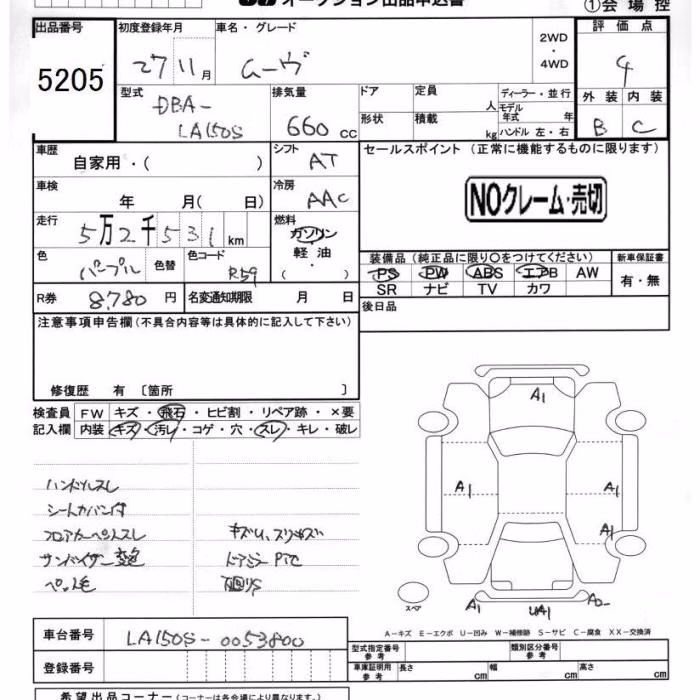 オークション出品申込書
①会場控
出品番号
5205
初度登録年月
27 11月
車名・グレード
ムーヴ
2WD
・
4WD
評価点
4
型式
DBA-
LA150S
排気量
660 cc
ドア
定員
人
ディーラー・並行
モデル
年式 年
形状
積載
kg
ハンドル 左・右
外装 内装
B C
車歴
自家用・( )
シフト
AT
セールスポイント (正常に機能するものに限ります)
NOクレーム・売切
車検
年 月( 日)
冷房
AAC
走行
5万2千531km
燃料
ガソリン
軽油
・( )
色
パープル
色替
色コード
R59
装備品 (純正品に限り〇をつけてください)
新車保証書
PS PW ABS エアB AW
有・無
SR ナビ TV カワ
R券
8,780 円
名変通知期限 月 日
後日品
注意事項申告欄 (不具合内容等は具体的に記入して下さい)
修復歴 有 〔箇所 〕
検査員
記入欄
FW キズ・飛石・ヒビ割・リペア跡・×要
内装 キズ・汚レ・コゲ・穴・スレ・キレ・破レ
ハンドルスレ
シートカバー付
フロアカーペットスレ
サンバイザー変色
ペット毛
キズU、スリキズ
ドアミラーPTC
A1
A1
A1
A1
A1
UA1
スペア
A-キズ E-エクボ U-凹み W-補修跡 S-サビ C-腐食 XX-交換済
車台番号
LA150S-0053800
登録番号
型式指定番号
参考
類別区分番号
参考
車庫証明用
参考
長さ cm
幅 cm
高さ cm
希望出品コーナー (コーナーは各会場により異なります。)